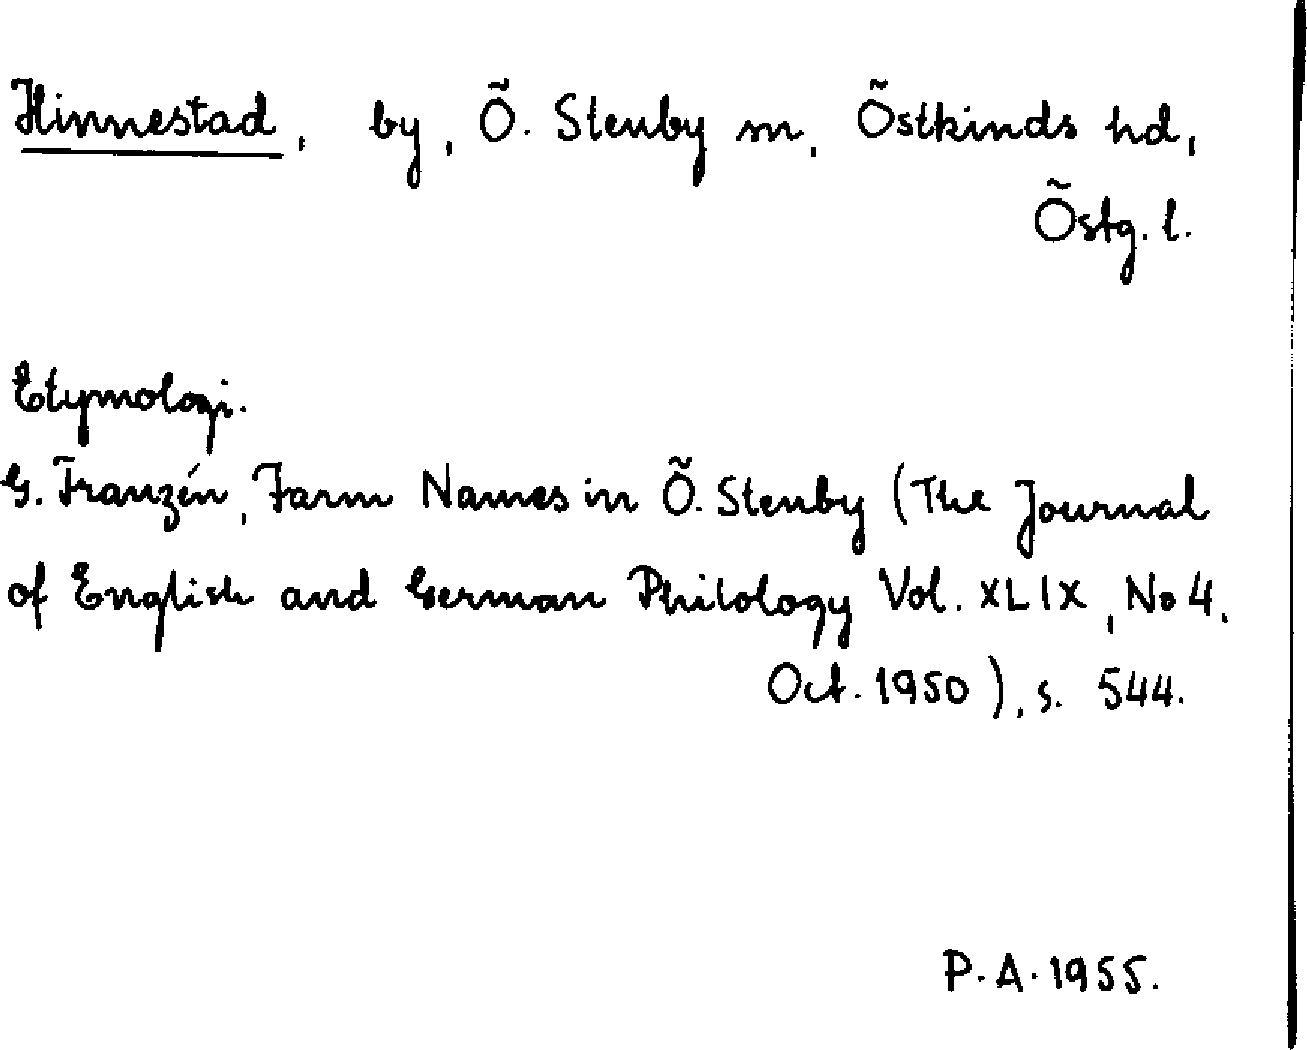 Hinnestad, by, Ö. Stenby sn, Östkinds hd,
Östg. l.
Etymologi.
G. Franzén, Farm Names in Ö. Stenby (The Journal
of English and German Philology Vol. XLIX, No 4,
Oct. 1950), s. 544.
P. A. 1955.